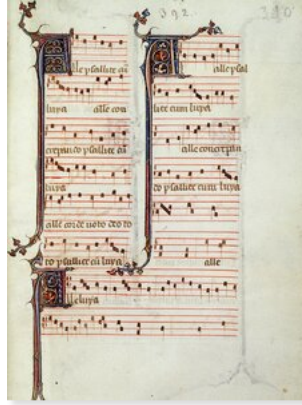 392.
Alle psallite cū
luya
alle con
crepando psallite cū
luya
alle corde voto deo to
to psallite cū luya
Alle psal
lite cum luya
alle concrepan
do psallite cum luya
alle
Alleluya